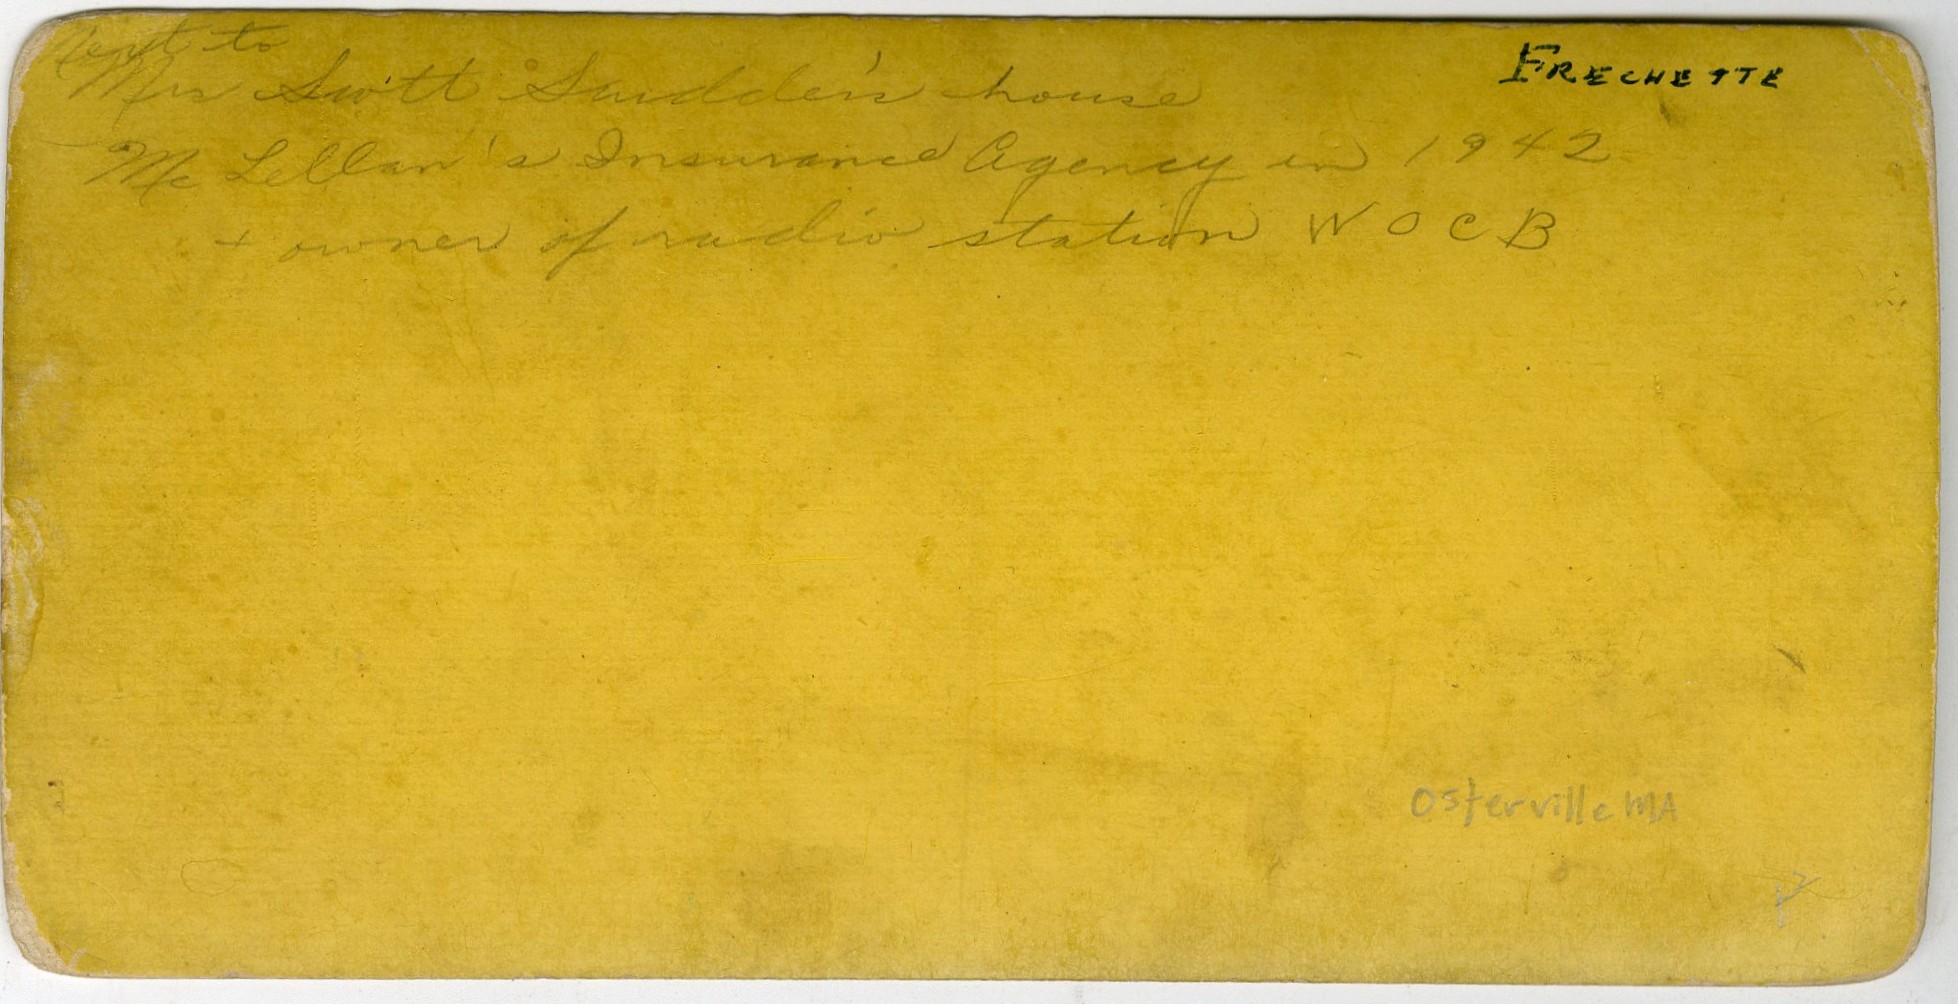 Next to
Mrs Swift Scudder's house
McLellan's Insurance Agency in 1942
+ owner of radio station WOCB
FRECHETTE
Osterville MA